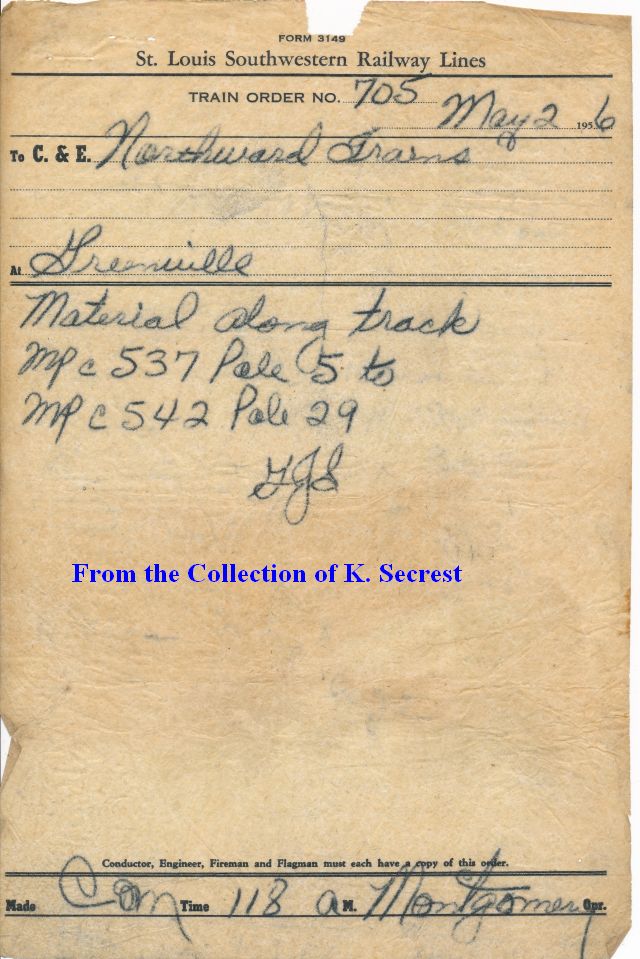 FORM 3149
St. Louis Southwestern Railway Lines
TRAIN ORDER NO. 705 May 2 1956
To C. & E. Northward Trains
At Greenville
Material along track
MP c 537 Pole 5 to
MP c 542 Pole 29
TJS
From the Collection of K. Secrest
Conductor, Engineer, Fireman and Flagman must each have a copy of this order.
Made Com Time 118 a M. Montgomery Opr.